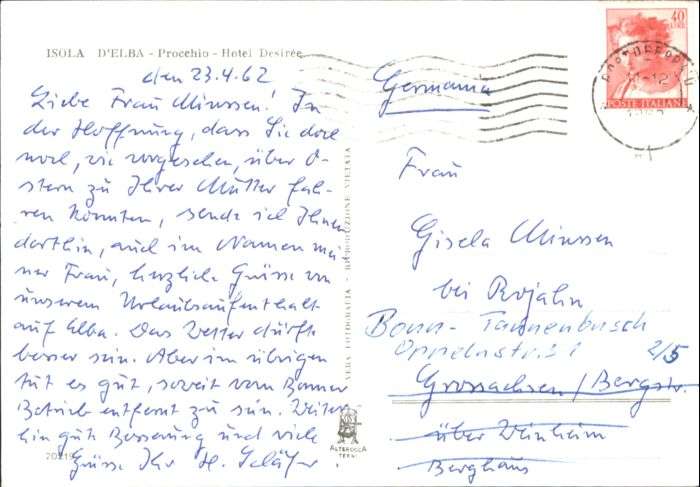 ISOLA D'ELBA - Procchio - Hotel Desirée
den 23.4.62
Liebe Frau Minssen! In
der Hoffnung, dass Sie doch
noch, wie vorgesehen, über O-
stern zu Ihrer Mutter fah-
ren konnten, sende ich Ihnen
dorthin, auch im Namen mei-
ner Frau, herzliche Grüsse von
unserem Urlaubsaufenthalt
auf Elba. Das Wetter dürfte
besser sein. Aber im übrigen
tut es gut, soweit vom Bonner
Betrieb entfernt zu sein. Weiter-
hin gute Besserung und viele
Grüsse Ihr H. Schäfer.
20219
VERA FOTOGRAFIA - RIPRODUZIONE VIETATA
ALTEROCCA
TERNI
40
LIRE
POSTE ITALIANE
Germania
Frau
Gisela Minssen
bei Rojahn
Bonn-Tannenbusch
Oppelnstr. 2/5
Grossachsen/Bergstr.
über Weinheim
Berghaus